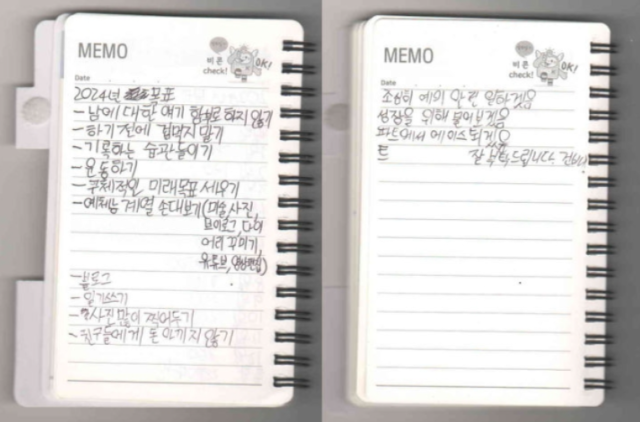 MEMO
비폰
check!
OK!
Date
2024년 목표
-남에 대한 얘기 함부로 하지 않기
-하기 전에 겁먹지 말기
-기록하는 습관들이기
-운동하기
-구체적인 미래목표 세우기
-예체능 계열 손대보기(미술,사진,
브이로그, 다이
어리 꾸미기,
유튜브, 영상편집)
-블로그
-일기쓰기
-사진 많이 찍어두기
-친구들에게 돈 아끼지 않기
MEMO
비폰
check!
OK!
Date
조심히 예의
성장을 위해
파트에서 에이스 되겠음
잘 부탁드립니다.